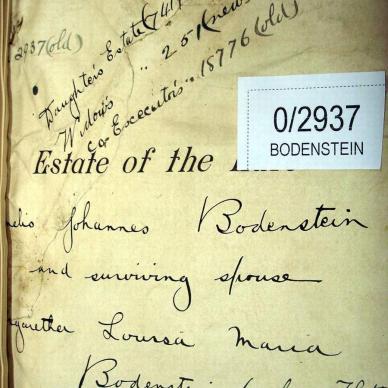 2937 (old)
Daughter's Estate (741
Widow's " 251 (new
Co Excecutors' 18776 (old)
0/2937
BODENSTEIN
Estate of the
Johannes Bodenstein
and surviving spouse
Loursa Maria
Bodenstein